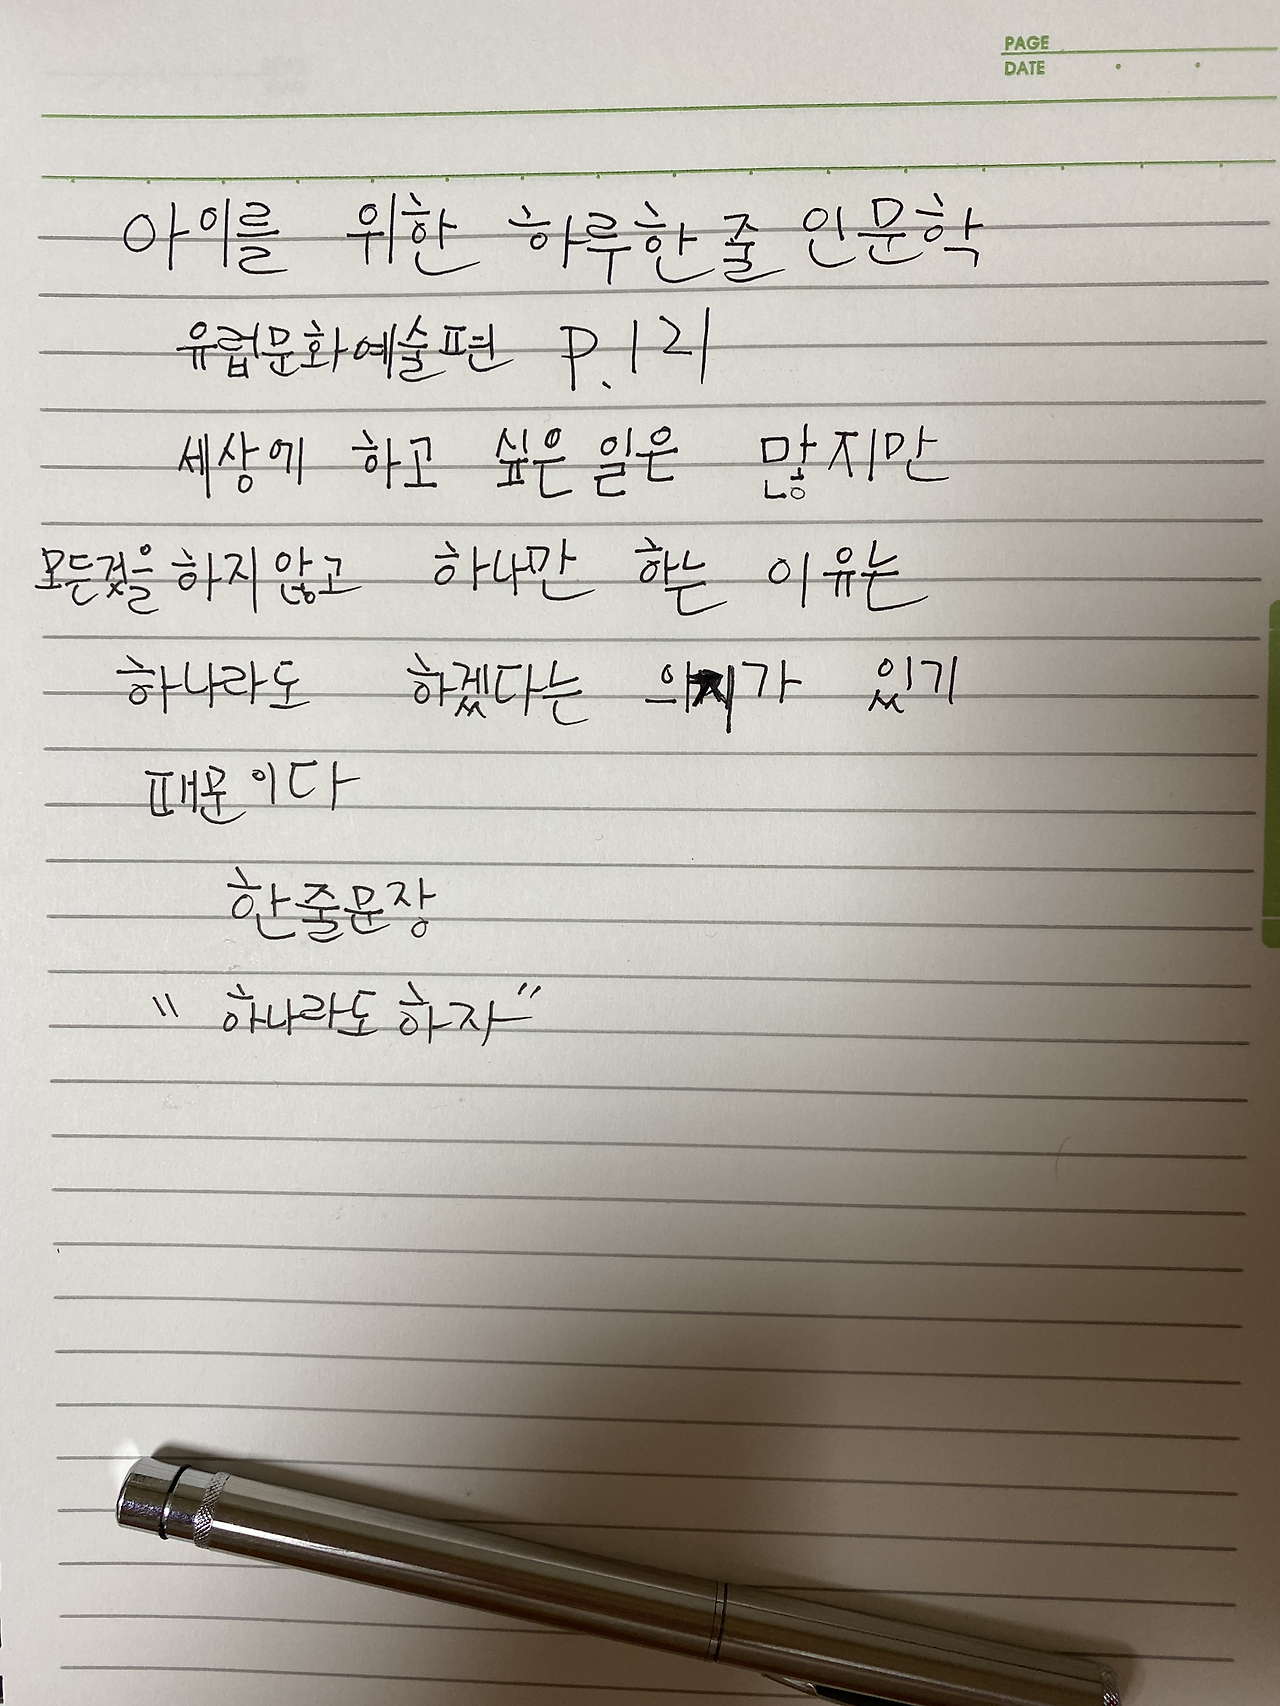 PAGE
DATE
아이를 위한 하루한줄 인문학
유럽문화예술편 P.121
세상에 하고 싶은 일은 많지만
모든것을 하지 않고 하나만 하는 이유는
하나라도 하겠다는 의지가 있기
때문이다
한줄문장
" 하나라도 하자"